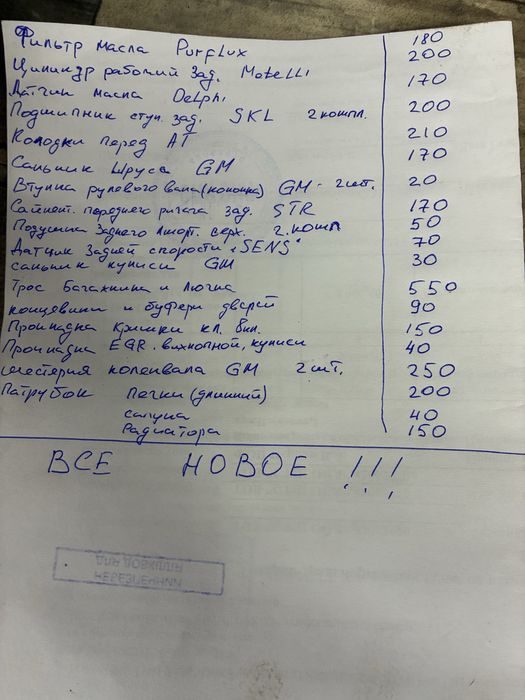 Фильтр масла Purflux 180
Цилиндр рабочий зад. Metelli 200
Датчик масла Delphi 170
Подшипник ступ. зад. SKL 2 компл. 200
Колодки перед AT 210
Сальник Шруса GM 170
Втулка рулевого вала (колонка) GM - 2 шт. 20
Сайлент. переднего рычага зад. STR 170
Подушка Заднего Аморт. верх. 2 комп 50
Датчик Задней скорости "SENS" 70
сальник кулисы GM 30
Трос Багажника и Лючка 550
концевики и буфера дверей 90
Прокладка Крышки кл. 8кл. 150
Прокладка EGR. выхлопной, кулисы 40
шестерня коленвала GM 2 шт. 250
Патрубок Печки (длинный) 200
сапуна 40
Радиатора 150
ВСЕ НОВОЕ !!!
ДЛЯ ДОВІДКИ